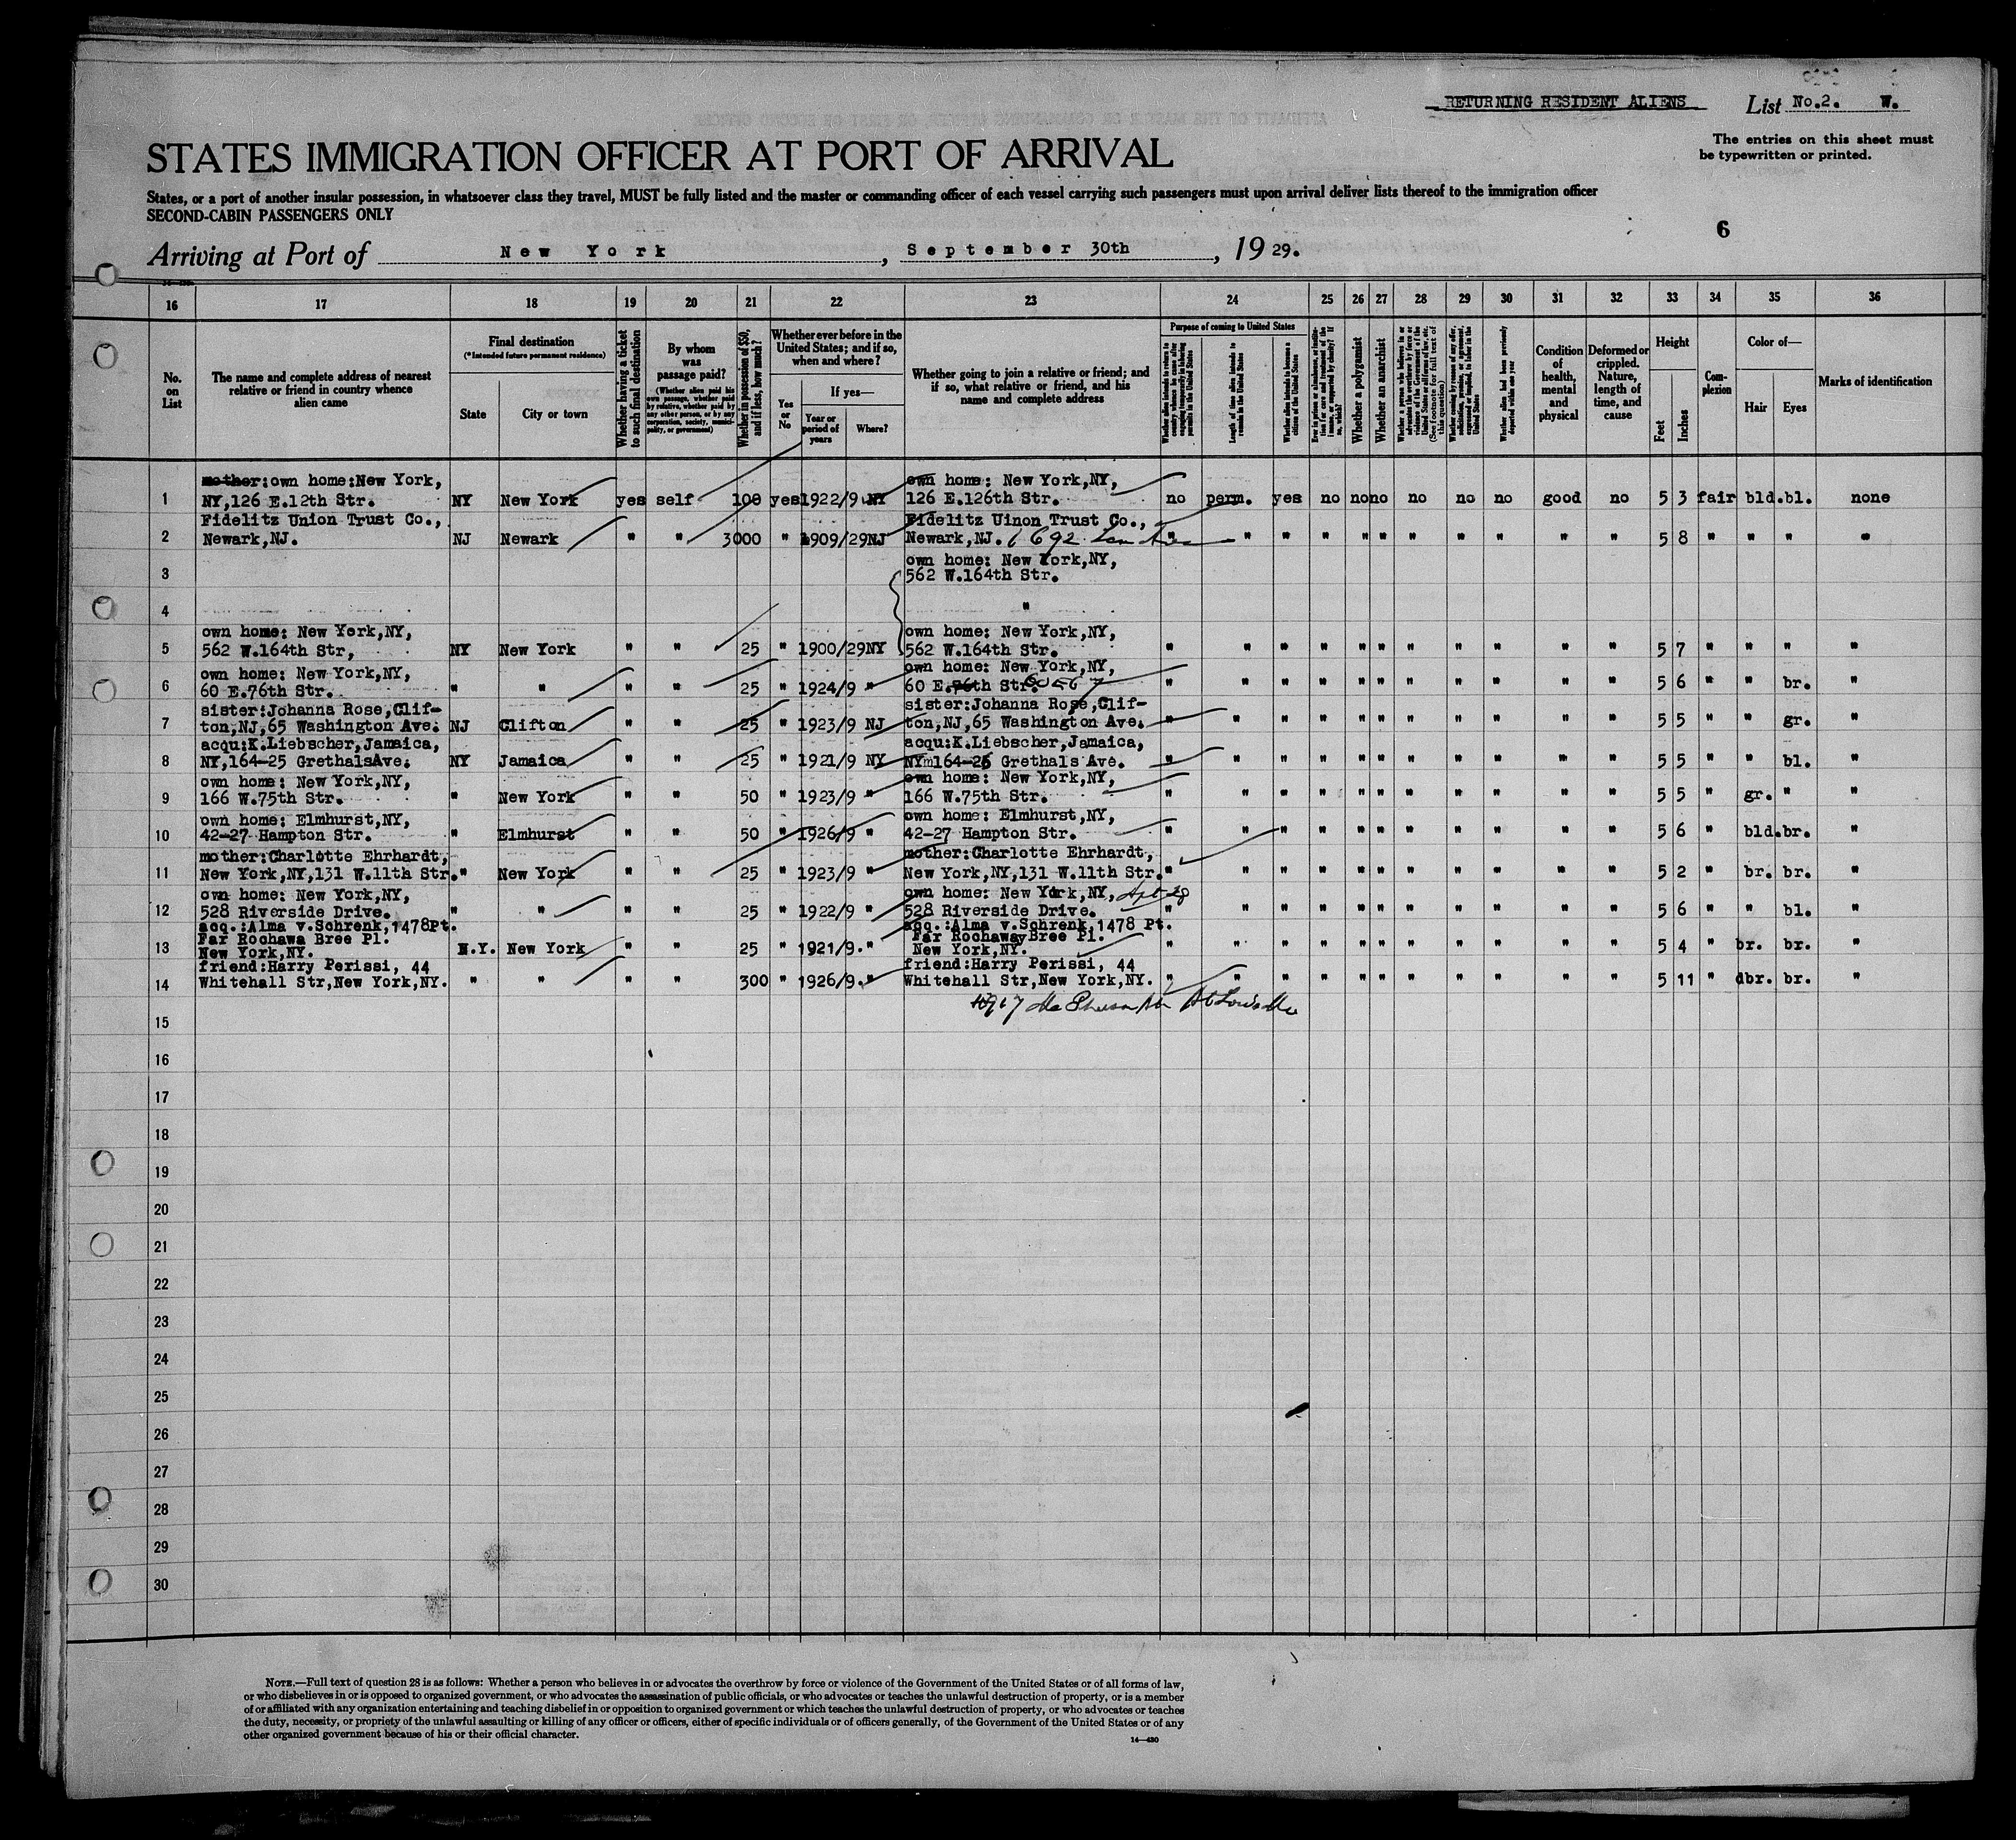 RETURNING RESIDENT ALIENS
List No.2. W.
The entries on this sheet must
be typewritten or printed.
STATES IMMIGRATION OFFICER AT PORT OF ARRIVAL
States, or a port of another insular possession, in whatsoever class they travel, MUST be fully listed and the master or commanding officer of each vessel carrying such passengers must upon arrival deliver lists thereof to the immigration officer
SECOND-CABIN PASSENGERS ONLY
6
Arriving at Port of New York, September 30th, 19 29.
16 17 18 19 20 21 22 23 24 25 26 27 28 29 30 31 32 33 34 35 36
No. on List
The name and complete address of nearest relative or friend in country whence alien came
Final destination
(*Intended future permanent residence)
State
City or town
Whether having a ticket to such final destination
By whom was passage paid?
(Whether alien paid his own passage, whether paid by relative, whether paid by any other person, or by any corporation, society, municipality, or government)
Whether in possession of $50, and if less, how much?
Whether ever before in the United States; and if so, when and where?
Yes or No
If yes—
Year or period of years
Where?
Whether going to join a relative or friend; and if so, what relative or friend, and his name and complete address
Purpose of coming to United States
Length of time alien intends to remain in the United States
Whether alien intends to become a citizen of the United States
Whether a polygamist
Whether an anarchist
Condition of health, mental and physical
Deformed or crippled. Nature, length of time, and cause
Height
Feet
Inches
Complexion
Color of—
Hair
Eyes
Marks of identification
mother:own home:New York, own home: New York,NY,
1 NY,126 E.12th Str. NY New York yes self 100 yes 1922/9 NY 126 E.126th Str. no perm. yes no no no no no no good no 5 3 fair bld. bl. none
Fidelitz Union Trust Co., Fidelitz Uinon Trust Co.,
2 Newark,NJ. NJ Newark " " 3000 " 1909/29 NJ Newark,NJ. " " " " " " " " " " " 5 8 " " " "
own home: New York,NY,
3 562 W.164th Str.
4 "
own home: New York,NY, own home: New York,NY,
5 562 W.164th Str, NY New York " " 25 " 1900/29 NY 562 W.164th Str. " " " " " " " " " " " 5 7 " " " "
own home: New York,NY, own home: New York,NY,
6 60 E.76th Str. " " " " 25 " 1924/9 " 60 E.76th Str. " " " " " " " " " " " 5 6 " " br. "
sister:Johanna Rose,Clif- sister:Johanna Rose,Clif-
7 ton,NJ,65 Washington Ave. NJ Clifton " " 25 " 1923/9 NJ ton,NJ,65 Washington Ave. " " " " " " " " " " " 5 5 " " gr. "
acqu:K.Liebscher,Jamaica, acqu:K.Liebscher,Jamaica,
8 NY,164-25 GrethalsAve. NY Jamaica " " 25 " 1921/9 NY NYm164-25 Grethals Ave. " " " " " " " " " " " 5 5 " " bl. "
own home: New York,NY, own home: New York,NY,
9 166 W.75th Str. " New York " " 50 " 1923/9 " 166 W.75th Str. " " " " " " " " " " " 5 5 " gr. " "
own home: Elmhurst,NY, own home: Elmhurst,NY,
10 42-27 Hampton Str. " Elmhurst " " 50 " 1926/9 " 42-27 Hampton Str. " " " " " " " " " " " 5 6 " bld. br. "
mother:Charlotte Ehrhardt, mother:Charlotte Ehrhardt,
11 New York,NY,131 W.11th Str. " New York " " 25 " 1923/9 " New York,NY,131 W.11th Str. " " " " " " " " " " " 5 2 " br. br. "
own home: New York,NY, own home: New York,NY, Apt 28
12 528 Riverside Drive. " " " " 25 " 1922/9 " 528 Riverside Drive. " " " " " " " " " " " 5 6 " " bl. "
acq.:Alma v.Schrenk,1478Pt. acq.:Alma v.Schrenk,1478 Pt.
Far Rochawa Bree Pl. Far Rochaway Bree Pl.
13 New York,NY. N.Y. New York " " 25 " 1921/9. " New York,NY. " " " " " " " " " " " 5 4 " br. br. "
friend:Harry Perissi, 44 friend:Harry Perissi, 44
14 Whitehall Str,New York,NY. " " " " 300 " 1926/9. " Whitehall Str,New York,NY. " " " " " " " " " " " 5 11 " dbr. br. "
15
16
17
18
19
20
21
22
23
24
25
26
27
28
29
30
NOTE.—Full text of question 28 is as follows: Whether a person who believes in or advocates the overthrow by force or violence of the Government of the United States or of all forms of law,
or who disbelieves in or is opposed to organized government, or who advocates the assassination of public officials, or who advocates or teaches the unlawful destruction of property, or is a member
of or affiliated with any organization entertaining and teaching disbelief in or opposition to organized government or which teaches the unlawful destruction of property, or who advocates or teaches
the duty, necessity, or propriety of the unlawful assaulting or killing of any officer or officers, either of specific individuals or of officers generally, of the Government of the United States or of any
other organized government because of his or their official character.
14—430